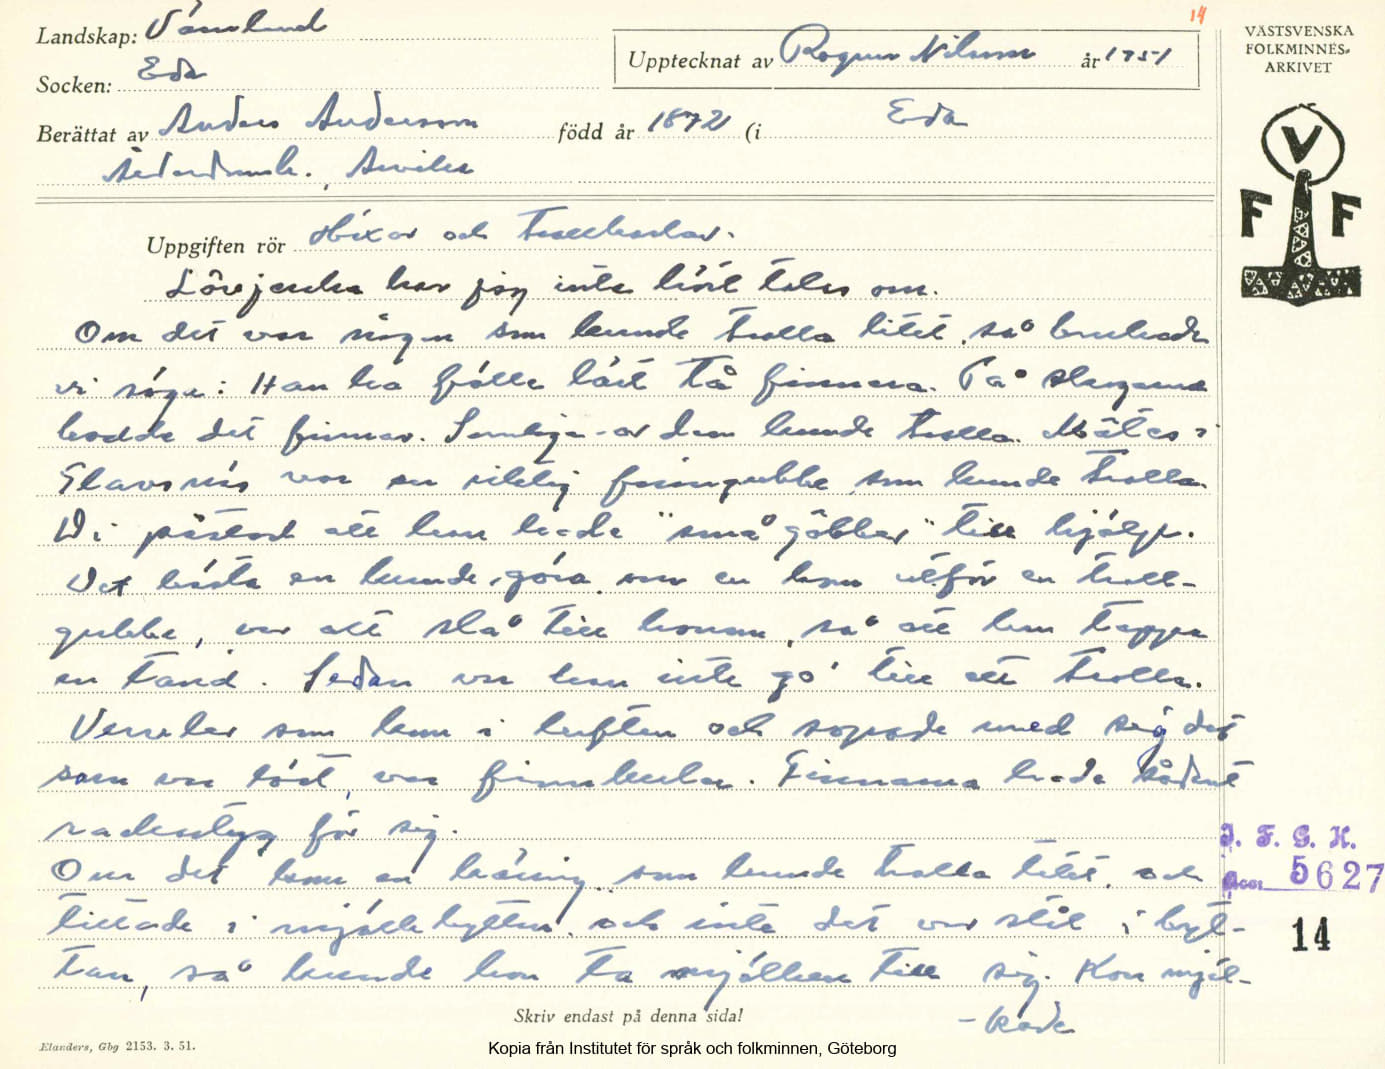 14
Landskap: Värmland
Upptecknat av Ragnar Nilsson år 1951
Socken: Eda
Berättat av Anders Andersson född år 1872 (i Eda
Häradsdomk., Arvika
VÄSTSVENSKA
FOLKMINNES-
ARKIVET
V
F F
Uppgiften rör Häxor och trollkarlar.
Lövjerska har jag inte hört talas om.
Om det var någon som kunde trolla litet, så brukade
vi säga: Han ha fälle lärt tå finnera. På skogarna
bodde det finnar. Somliga av dem kunde trolla. Mates i
Flavsnäs var en riktig finngubbe som kunde trolla.
Vi påstod att han hade "små göbber" till hjälp.
Det bästa en kunde göra, om en kom utför en troll-
gubbe, var att slå till honom, så att han tappa
en tand. Sedan var han inte go' till att trolla.
Vervlar som kom i luften och sopade med sig det
som var löst, var finnkular. Finnarna hade sådant
radenstyg för sig.
Om det kom en käring som kunde trolla litet, och
tittade i mjölkbyttan, och inte det var stål i byt-
tan, så kunde hon ta mjölken till sig. Hon mjöl-
-kade
I. F. G. H.
Acc. 5627
14
Skriv endast på denna sida!
Elanders, Gbg 2153. 3. 51.
Kopia från Institutet för språk och folkminnen, Göteborg